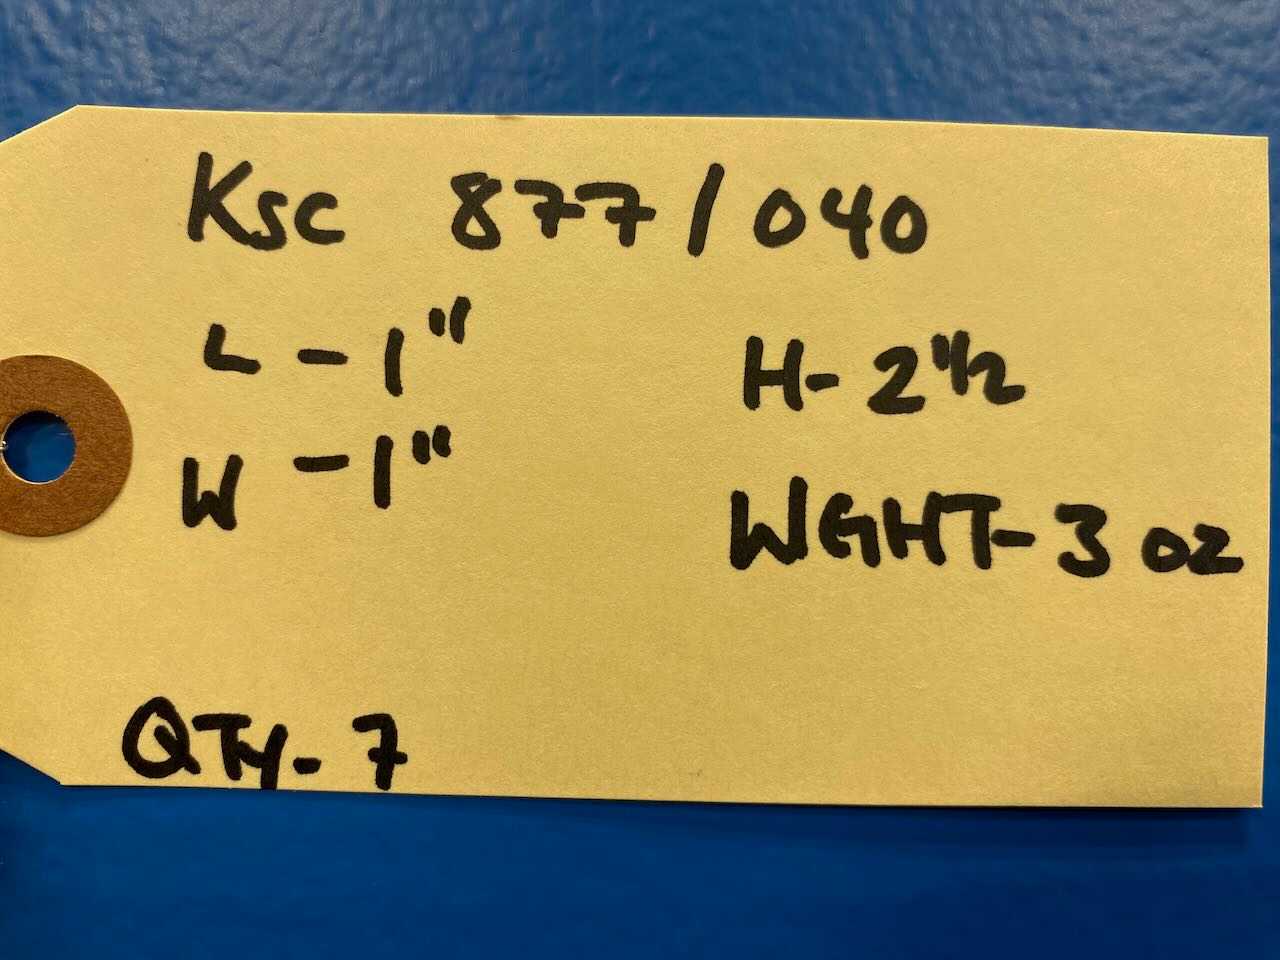 KSC 877/040
L - 1"
H- 2 1/2
W - 1"
WGHT- 3 oz
QTY- 7